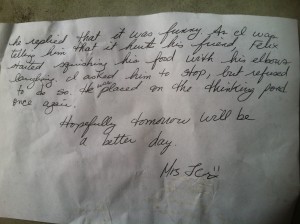 he replied that it was funny. As I was
telling him that it hurt his friend, Felix
started squishing his food with his elbows
laughing. I asked him to stop, but refused
to do so. He was placed on the thinking pood
once again.
Hopefully tomorrow will be
a better day.
Mrs